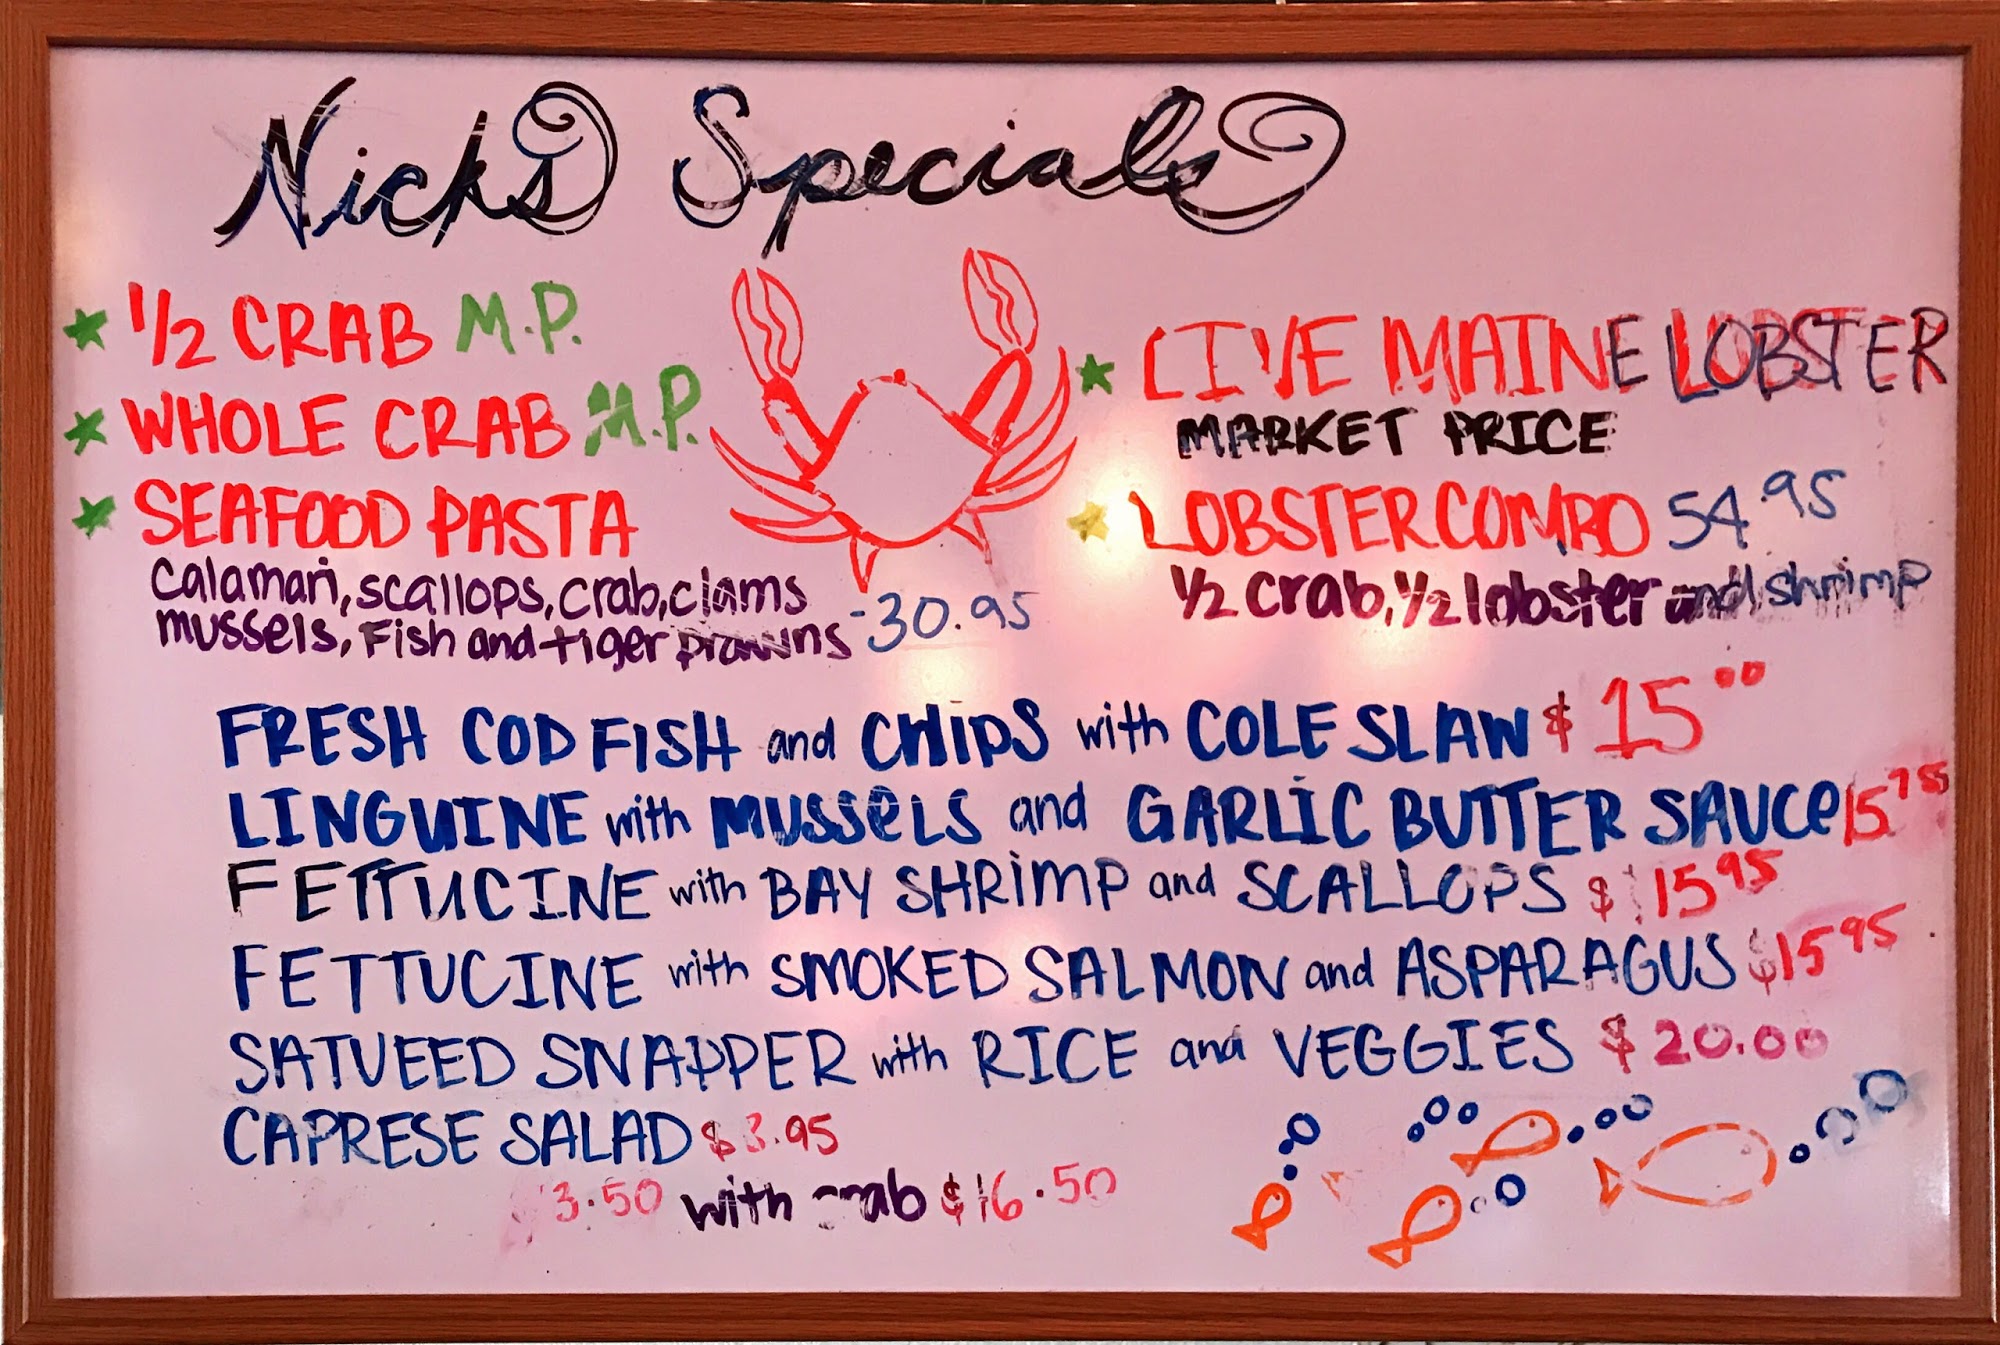 Nicks Specials
1/2 CRAB M.P.
WHOLE CRAB M.P.
SEAFOOD PASTA
calamari, scallops, crab, clams
mussels, Fish and tiger prawns -30.95
LIVE MAINE LOBSTER
MARKET PRICE
LOBSTER COMBO 54.95
1/2 crab, 1/2 lobster and shrimp
FRESH COD FISH and CHIPS with COLE SLAW $15.00
LINGUINE with MUSSELS and GARLIC BUTTER SAUCE 15
FETTUCINE with BAY SHRIMP and SCALLOPS $15 95
FETTUCINE with SMOKED SALMON and ASPARAGUS $15 95
SATUEED SNAPPER with RICE and VEGGIES $20.00
CAPRESE SALAD $3.95
3.50 with crab $16.50